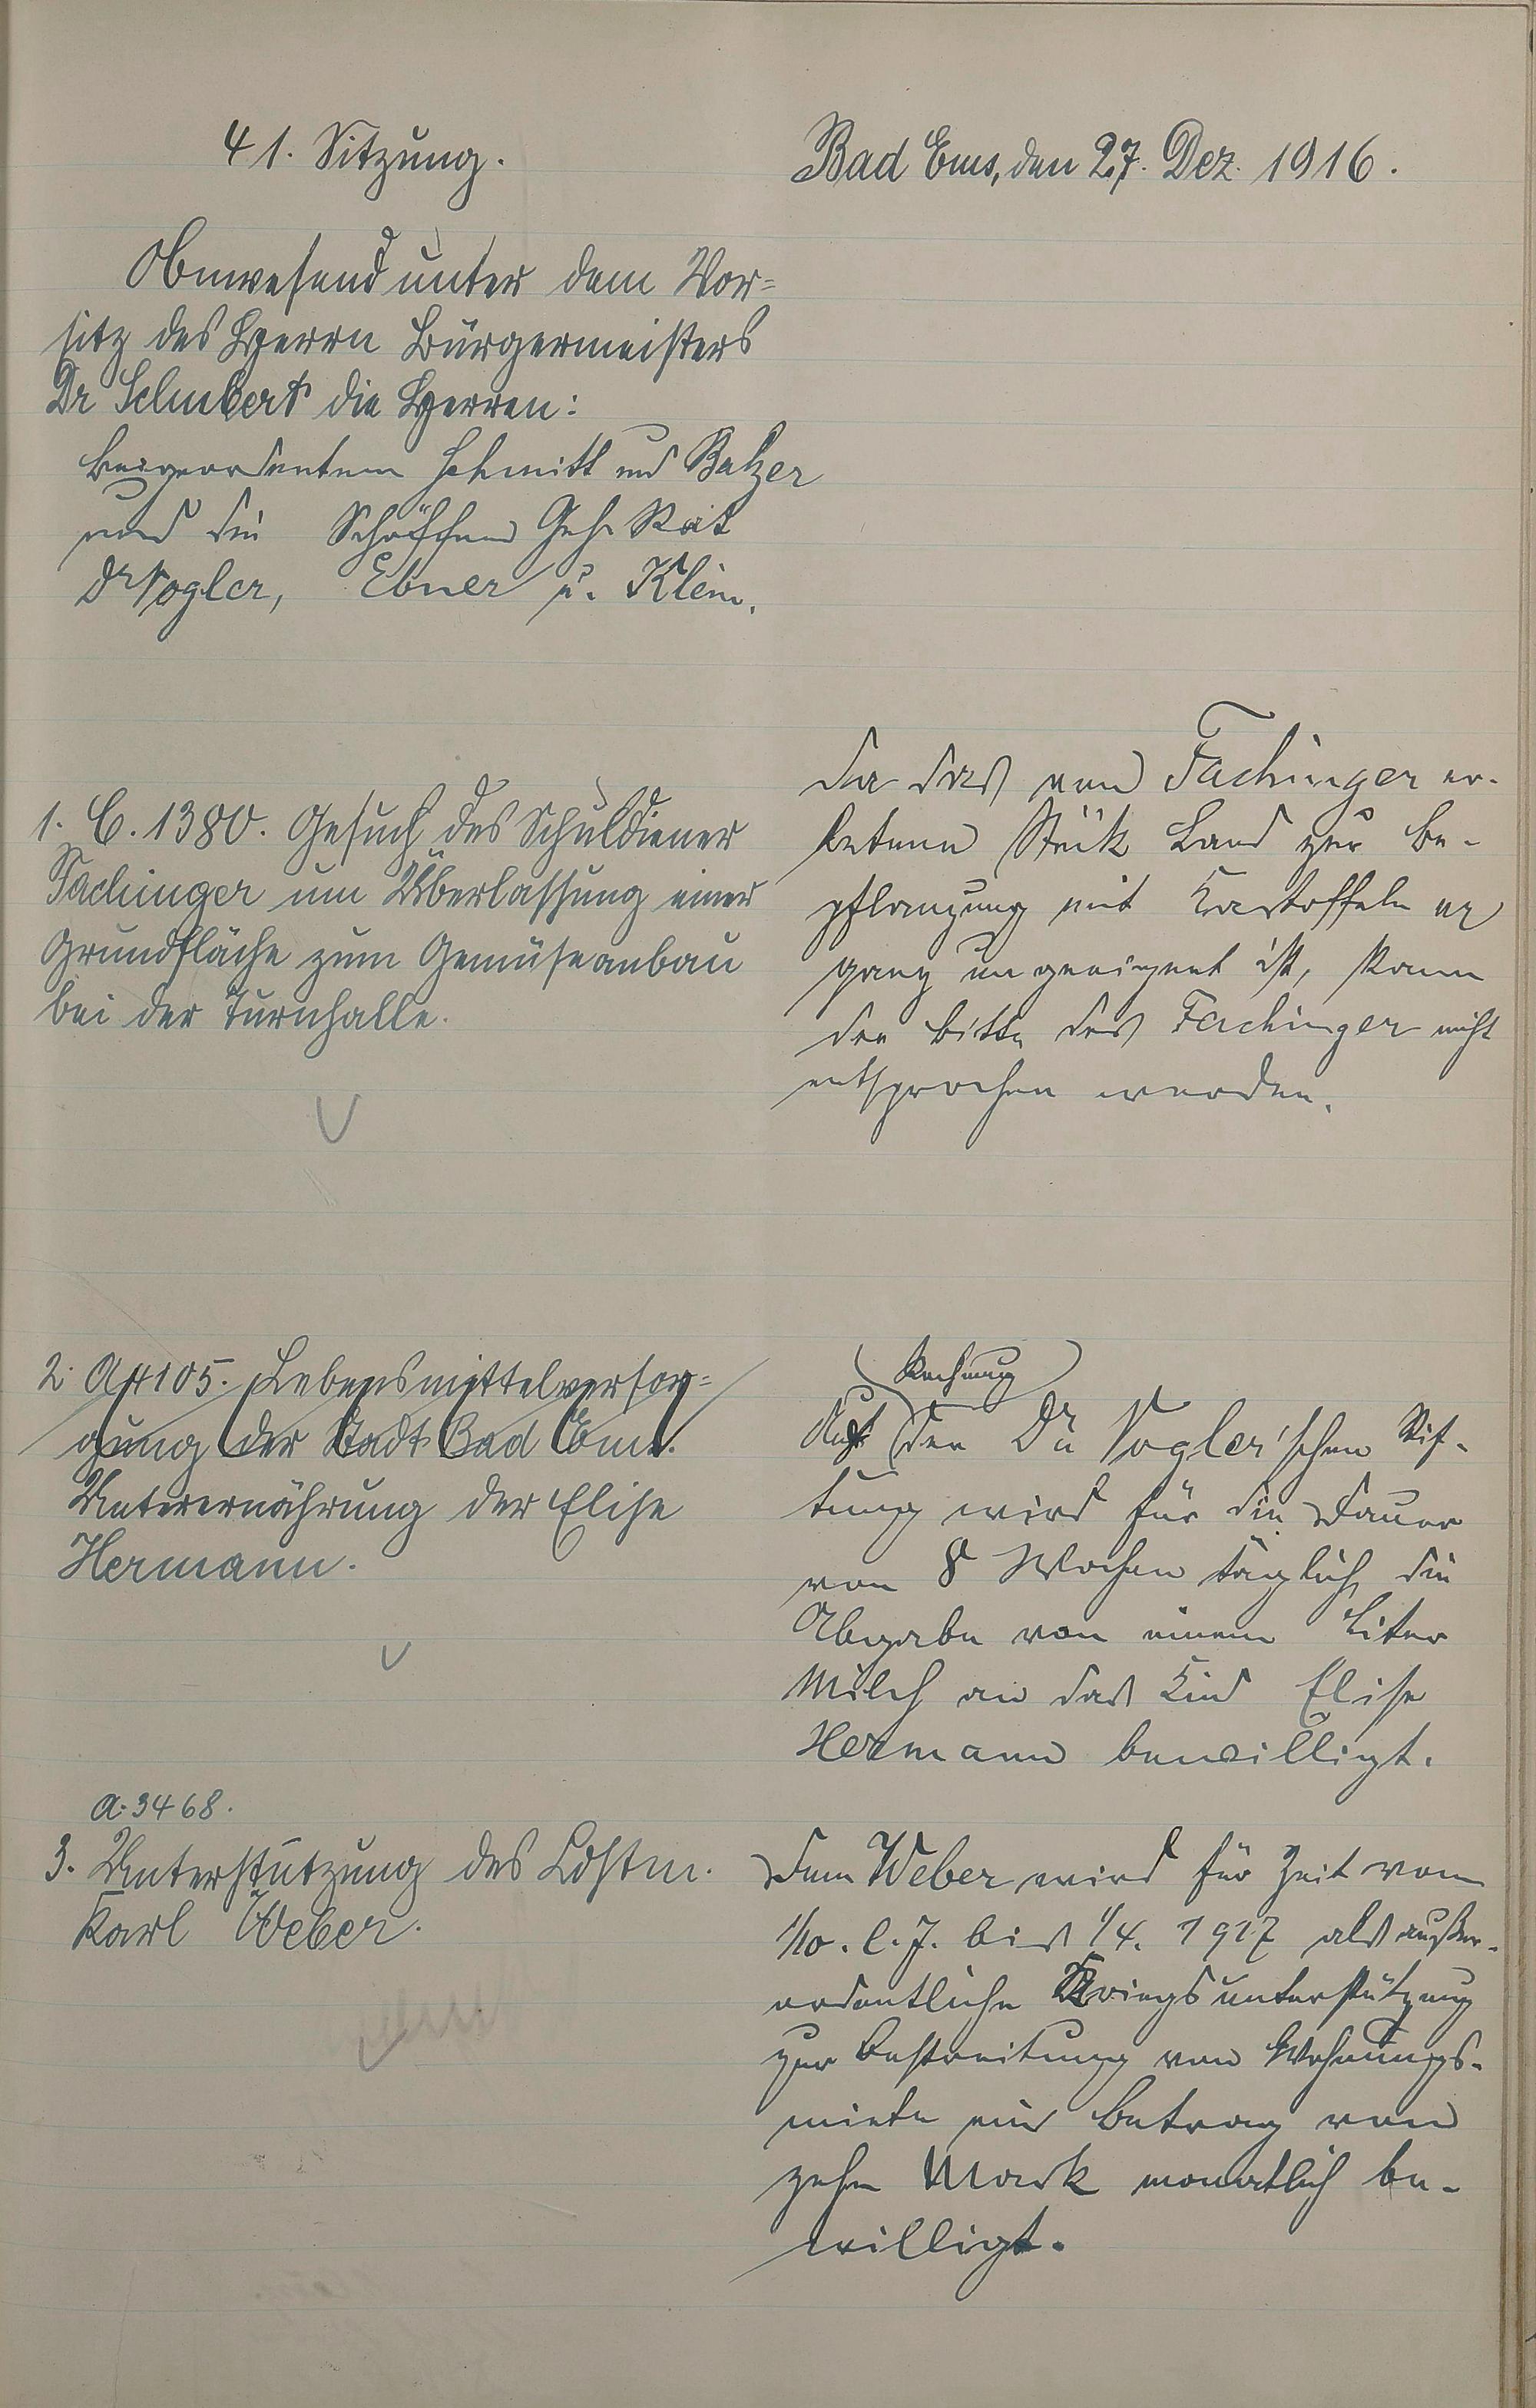 41. Sitzung.
Bad Ems, den 27. Dez. 1916.
Anwesend unter dem Vor=
sitz des Herrn Bürgermeisters
Dr Schubert die Herren:
Beigeordneten Schmitt und Balzer
und die Schöffen Geh. Rat
Dr Vogler, Ebner u. Klein.
1. C. 1380. Gesuch des Schuldiener
Fachinger um Überlassung einer
Grundfläche zum Gemüseanbau
bei der Turnhalle.
Da das von Fachinger er-
betene Stück Land zur Be-
pflanzung mit Kartoffeln
ganz ungeeignet ist, kann
der Bitte des Fachinger nicht
entsprochen werden.
2. A 4105. Lebensmittelversor=
gung der Stadt Bad Ems.
Unterernährung der Elise
Hermann.
Rechnung
Auf der Dr. Vogler'schen Stif-
tung wird für die Dauer
von 8 Wochen täglich die
Abgabe von einem Liter
Milch an das Kind Elise
Hermann bewilligt.
A. 3468.
3. Unterstützung des Ldstm.
Karl Weber.
Dem Weber wird für Zeit vom
1/10. l. J. bis 1/4. 1917 als außer-
ordentliche Kriegsunterstützung
zur Bestreitung von Wohnungs-
miete ein Betrag von
zehn Mark monatlich be-
willigt.